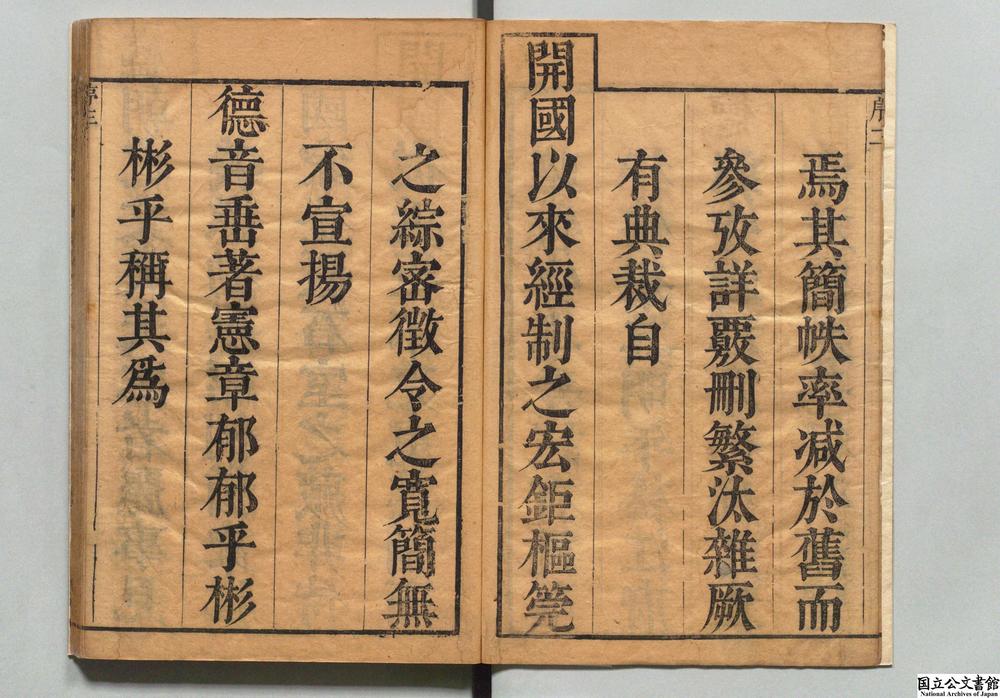 序二
焉其簡帙率減於舊而
參攷詳覈刪繁汰雜厥
有典裁自
開國以來經制之宏鉅樞筦
之綜密徵令之寬簡無
不宣揚
德音垂著憲章郁郁乎彬
彬乎稱其為
序三
国立公文書館
National Archives of Japan